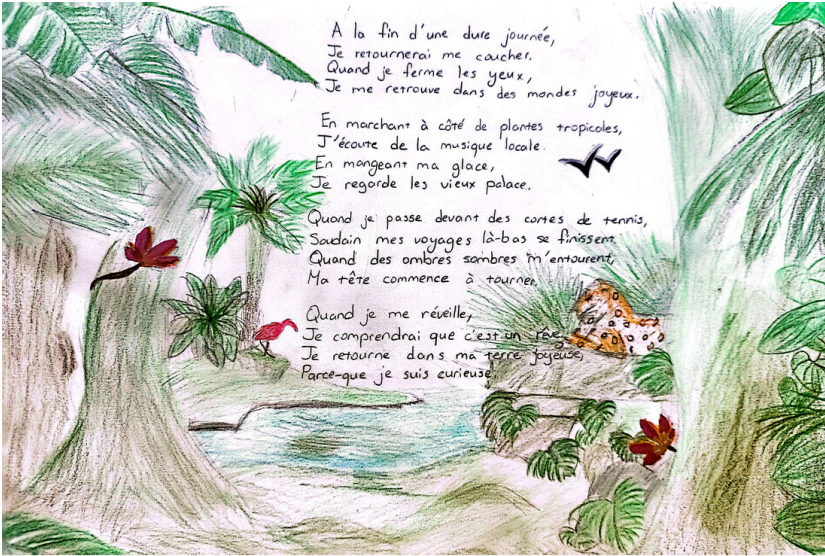 A la fin d'une dure journée,
Je retournerai me coucher.
Quand je ferme les yeux,
Je me retrouve dans des mondes joyeux.
En marchant à côté de plantes tropicales,
J'écoute de la musique locale.
En mangeant ma glace,
Je regarde les vieux palace.
Quand je passe devant des cortes de tennis,
Soudain mes voyages là-bas se finissent.
Quand des ombres sombres m'entourent,
Ma tête commence à tourner.
Quand je me réveille,
Je comprendrai que c'est un rêve,
Je retourne dans ma terre joyeuse,
Parce-que je suis curieuse!